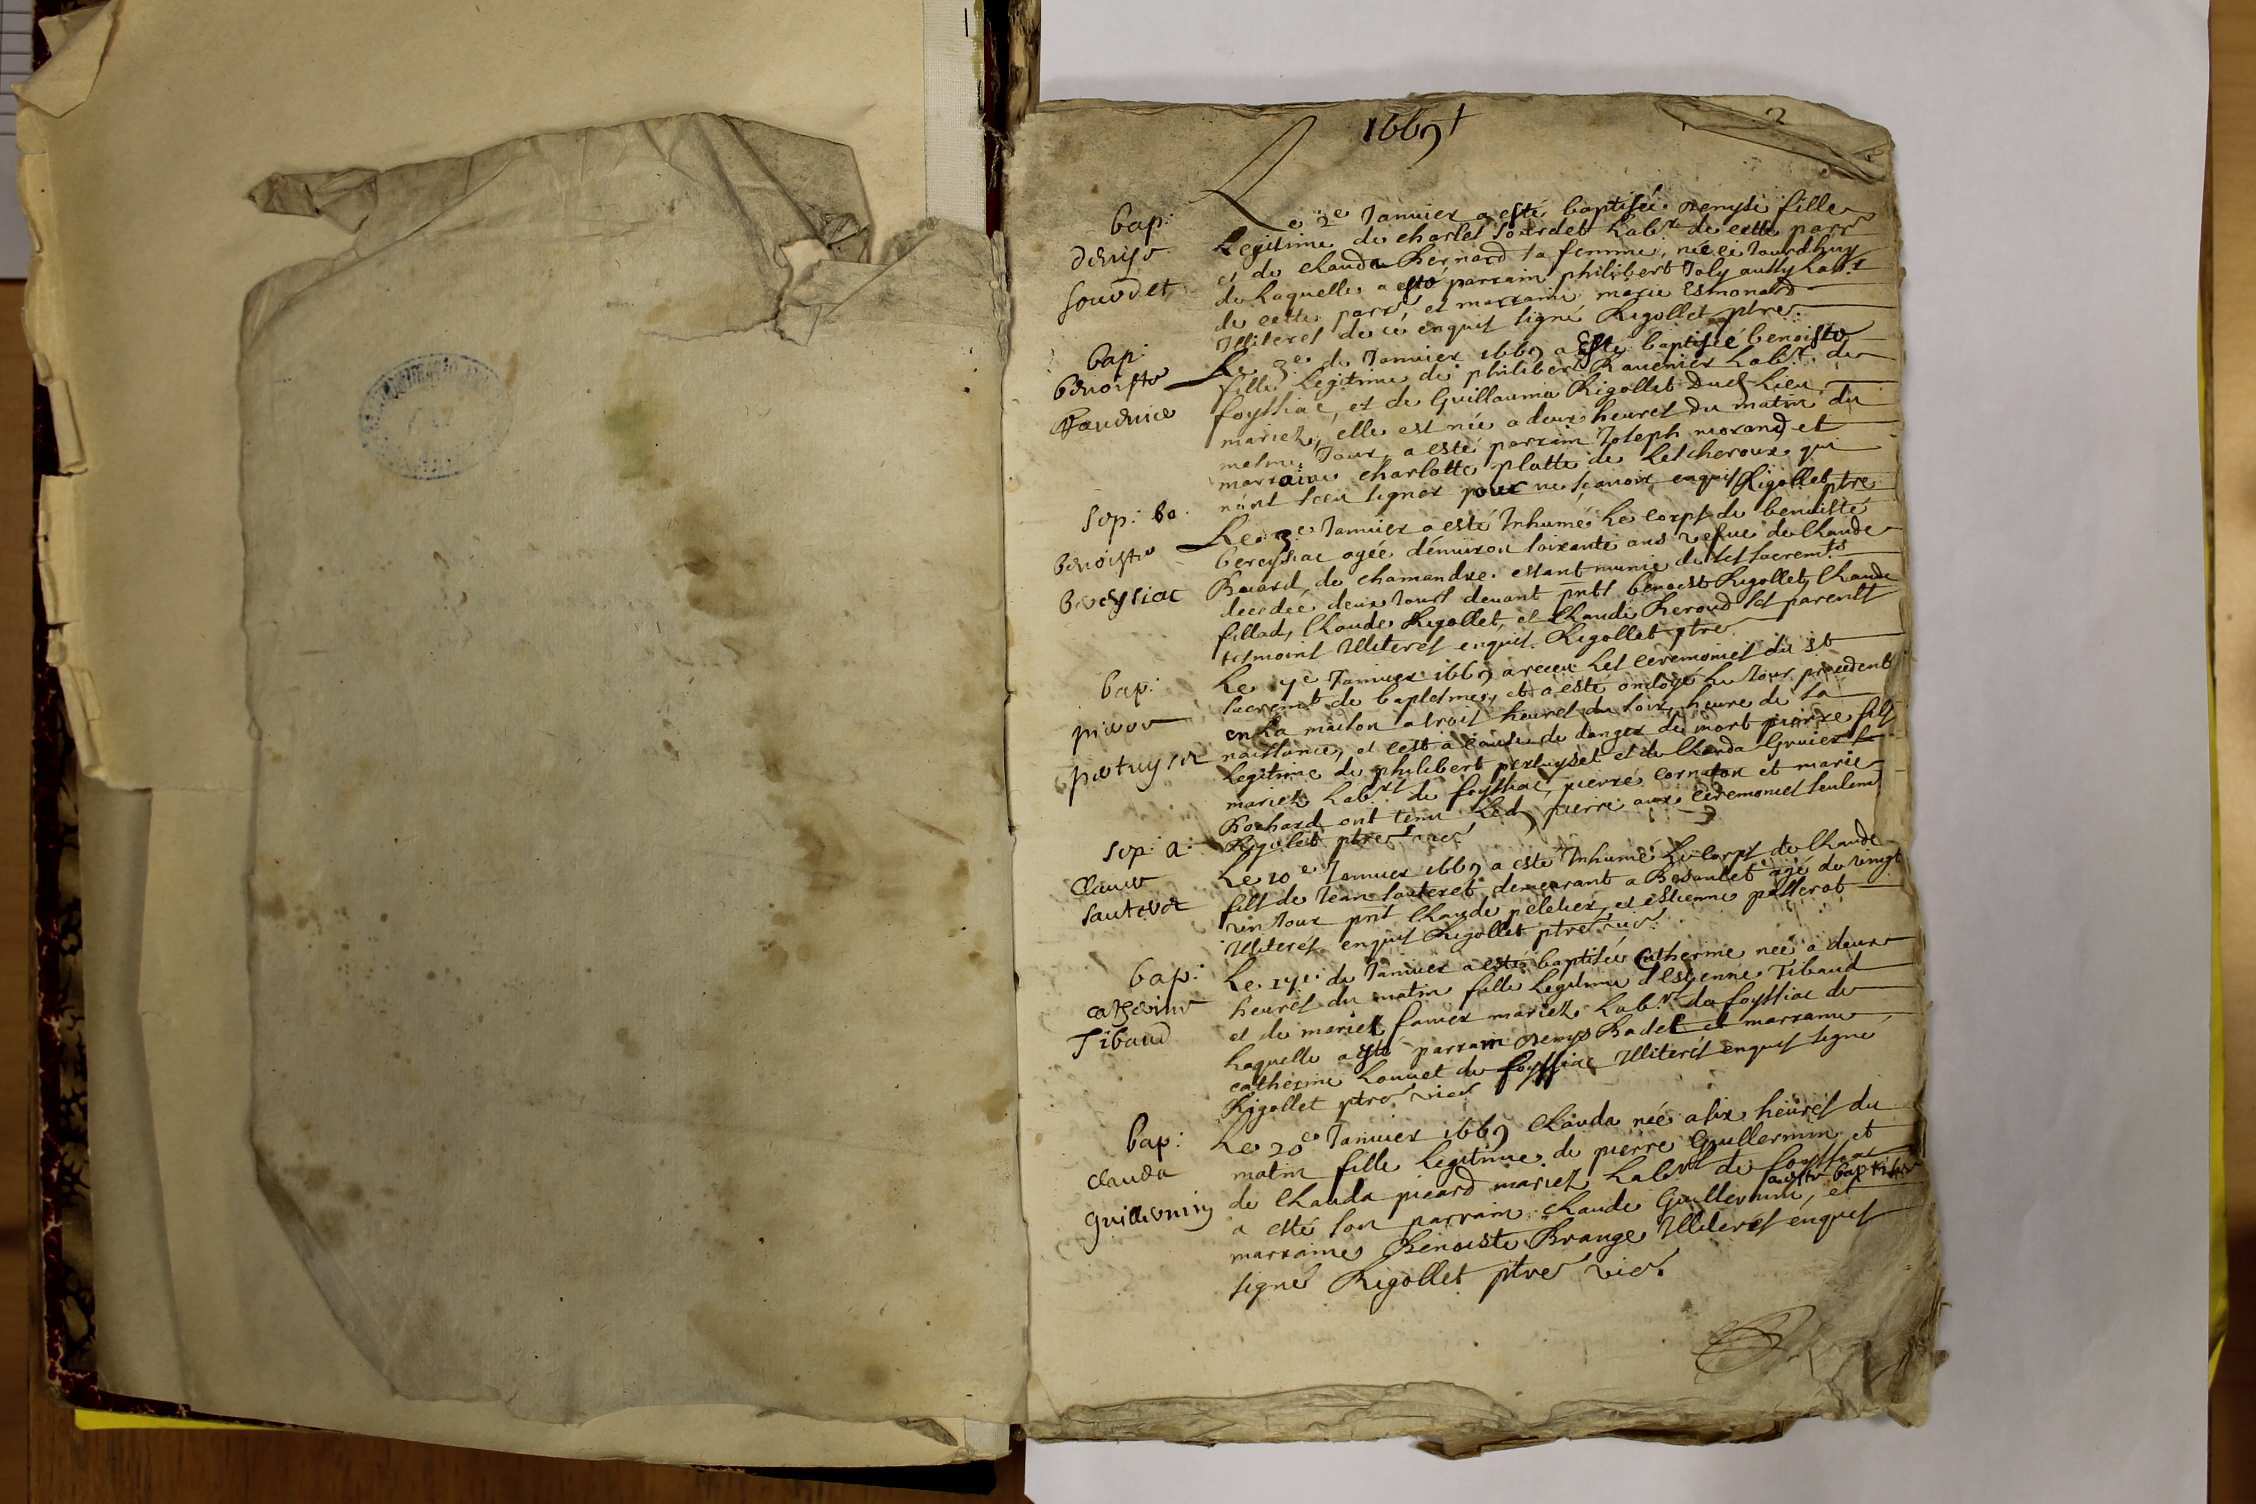 1669
2
bap:
denise
sourdet
Le 2e Januier a esté baptisée denyse fille
Legitime de charles sourdet Labr de cette parr
et de clauda Bernard sa femme, née ce Jourdhuy
de Laquelle a esté parrain philibert Joly aussy Labr
de cette parr, et marraine marie Esmonard
Illiteres de ce enquis signé Rigollet ptre
bap:
benoiste
Rauenier
Le 3e de Januier 1669 a Esté baptisée benoiste
fille Legitime de philibert Rauenier Labr. de
foyssiac, et de Guillauma Rigollet dud Lieu
mariez, elle est née a deux heures du matin du
mesme Jour, a esté parrain Joseph morand et
marraine charlotte platte de Lescheroux qui
nont sceu signer pour ne scauoir enquis Rigollet ptre
sep: bo.
benoiste
bereysiac
Le 3e Januier a esté Inhumé Le corps de benoiste
bereysiac agée denuiron soixante ans vefue de Claude
Bouard, de chamandre, estant munie de ses sacremts
decedée deux Jours deuant pnts benoist Rigollet, Claude
fillod, Claude Rigollet, et Claude Beroud ses parents
tesmoins Illiteres enquis. Rigollet ptre
bap:
pierre
pertuyset
Le 7e Januier 1669 a receu Les ceremonies du st
sacremt de baptesme, et a esté ondoyé Le Jour precedent
en La maison a trois heures du soir, heure de sa
naissance, et cest a cause de danger de mort pierre fils
Legitime de philibert pertuyset et de Clauda Gruier
mariez Labrs de foyssiac, pierre cornaton et marie
Bochard ont tenu Led pierre aux ceremonies seulemt
Rigollet ptre vic
sep: a:
Claude
sauteret
Le 10e Januier 1669 a esté Inhumé Le corps de Claude
fils de Jean sauteret demeurant a Besantet agé de vingt
un Jour pnt Claude peletier, et estienne passerot
Illiteres enquis Rigollet ptre vic.
bap:
catherine
Tibaud
Le 17e de Januier a esté baptisée Catherine née a deux
heures du matin fille Legitime d'Estienne Tibaud
et de marie fauier mariez Labrs de foyssiac de
Laquelle a esté parrain denys Badet et marraine
catherine Louuet de foyssiac Illiteres enquis signé
Rigollet ptre vic
bap:
clauda
guillermin
Le 20e Januier 1669 Clauda née a six heures du
matin fille Legitime de pierre Guillermin et
de Clauda picard mariez Labrs de foyssiac
a esté baptisée
a esté son parrain claude Guillermin, et
marraine Benoiste Brange Illiteres enquis
signé Rigollet ptre vic.